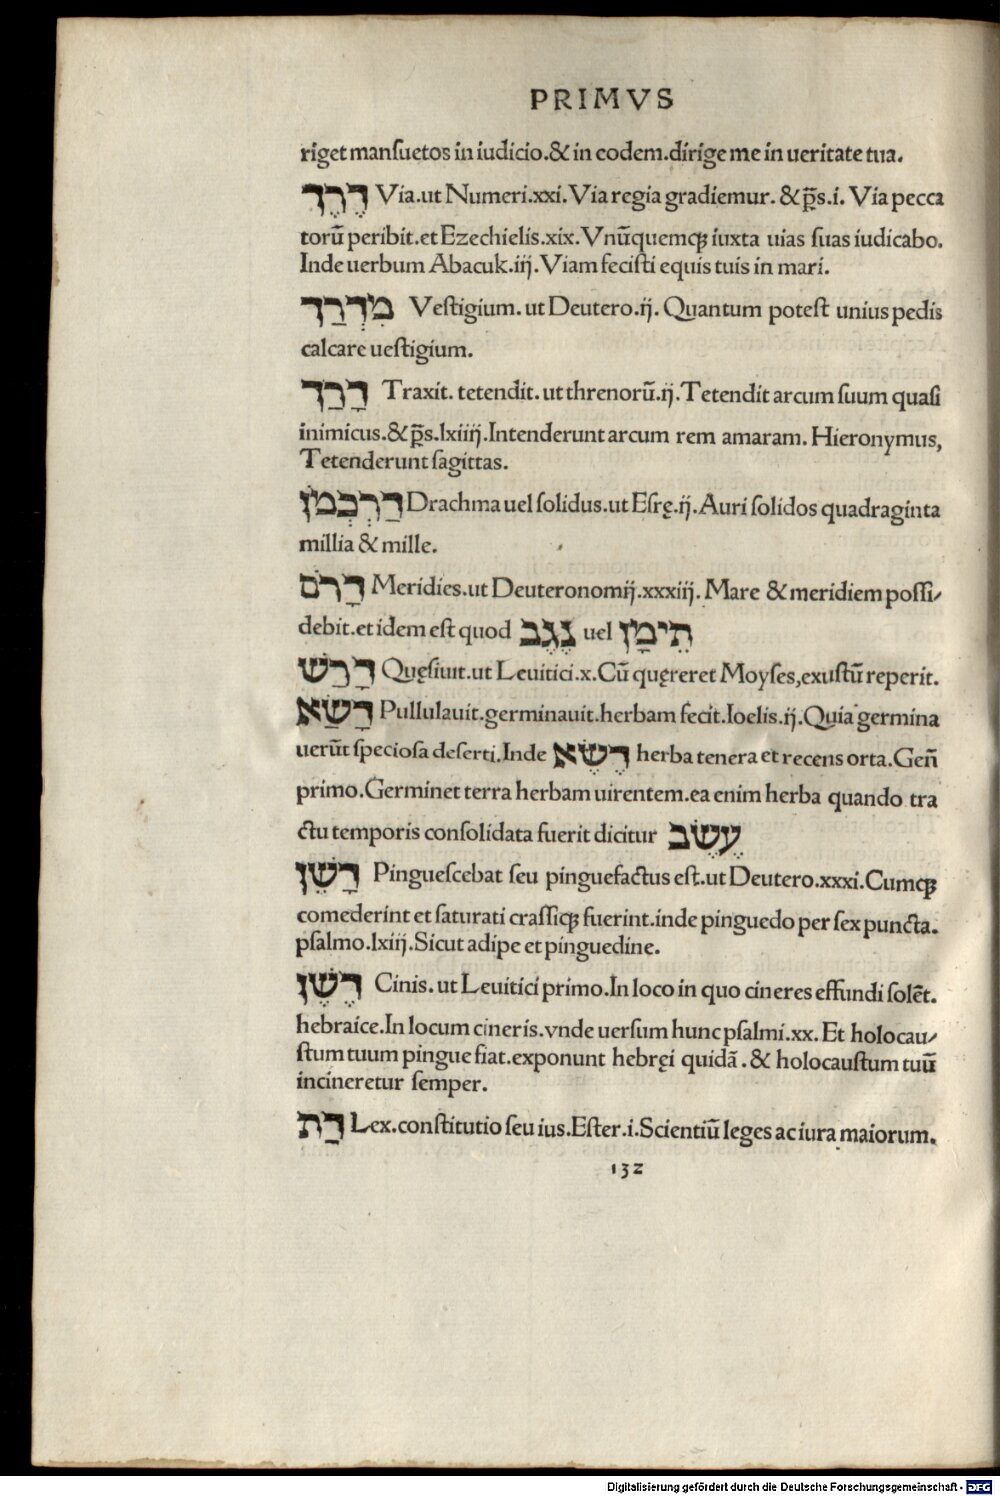 PRIMVS
riget manſuetos in iudicio.& in eodem.dirige me in ueritate tua.
דֶרֶך Via.ut Numeri.xxi.Via regia gradiemur. & p̄s.i. Via pecca
torū peribit.et Ezechielis.xix.Vnūquemqꝫ iuxta uias ſuas iudicabo.
Inde uerbum Abacuk.iij.Viam feciſti equis tuis in mari.
מִדְרַך Veſtigium. ut Deutero.ij. Quantum poteſt unius pedis
calcare ueſtigium.
דָרַך Traxit. tetendit. ut threnorū.ij.Tetendit arcum ſuum quaſi
inimicus.& p̄s.lxiiij.Intenderunt arcum rem amaram. Hieronymus,
Tetenderunt ſagittas.
דַרְכְמֹן Drachma uel ſolidus.ut Eſrę.ij.Auri ſolidos quadraginta
millia & mille.
דָרֹם Meridies.ut Deuteronomij.xxxiij. Mare & meridiem poſſi/
debit.et idem eſt quod נֶגֶב uel תֵימָן
דָרַשׁ Quęſiuit.ut Leuitici.x.Cū quęreret Moyſes,exuſtū reperit.
דָשָׁא Pullulauit.germinauit.herbam fecit.Ioelis.ij.Quia germina
uerūt ſpecioſa deſerti.Inde דֶשֶׁא herba tenera et recens orta.Geñ
primo.Germinet terra herbam uirentem.ea enim herba quando tra
ctu temporis conſolidata fuerit dicitur עֶשֶׂב
דָשֵׁן Pingueſcebat ſeu pinguefactus eſt.ut Deutero.xxxi.Cumqꝫ
comederint et ſaturati craſſiqꝫ fuerint.inde pinguedo per ſex puncta.
pſalmo.lxiij.Sicut adipe et pinguedine.
דֶשֶׁן Cinis. ut Leuitici primo.In loco in quo cineres effundi ſolēt.
hebraice.In locum cineris.vnde uerſum hunc pſalmi.xx. Et holocau/
ſtum tuum pingue fiat.exponunt hebręi quidā. & holocauſtum tuū
incineretur ſemper.
דַת Lex.conſtitutio ſeu ius.Eſter.i.Scientiū leges ac iura maiorum.
132
Digitalisierung gefördert durch die Deutsche Forschungsgemeinschaft - DFG